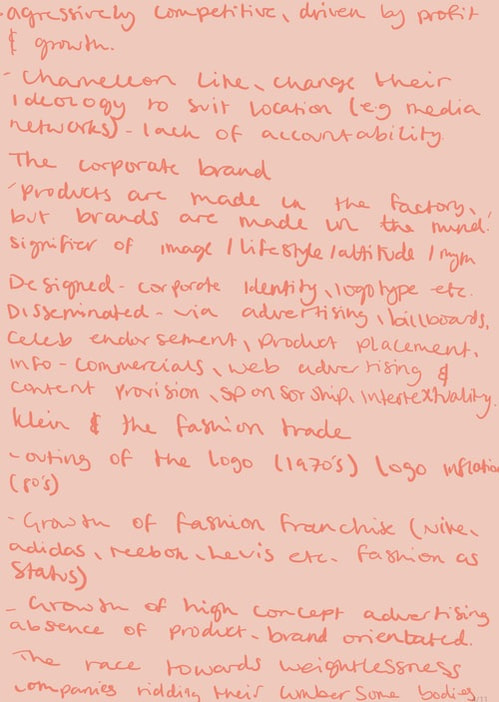 - agressively competitive, driven by profit
& growth.
- Chameleon like, change their
ideology to suit location (e.g media
networks) - lack of accountability.
The corporate brand
'products are made in the factory,
but brands are made in the mind.'
signifier of image / lifestyle / attitude / myth
Designed - corporate identity, logotype etc.
Disseminated - via advertising, billboards,
celeb endorsement, product placement,
info-commercials, web advertising &
content provision, sponsorship, intertextuality.
Klein & the fashion trade
- outing of the logo (1970's) logo inflation
(80's)
- Growth of fashion franchise (Nike,
adidas, reebok, Levis etc. fashion as
status)
- Growth of high concept advertising
absence of product - brand orientated.
The race towards weightlessness
companies ridding their cumbersome bodies